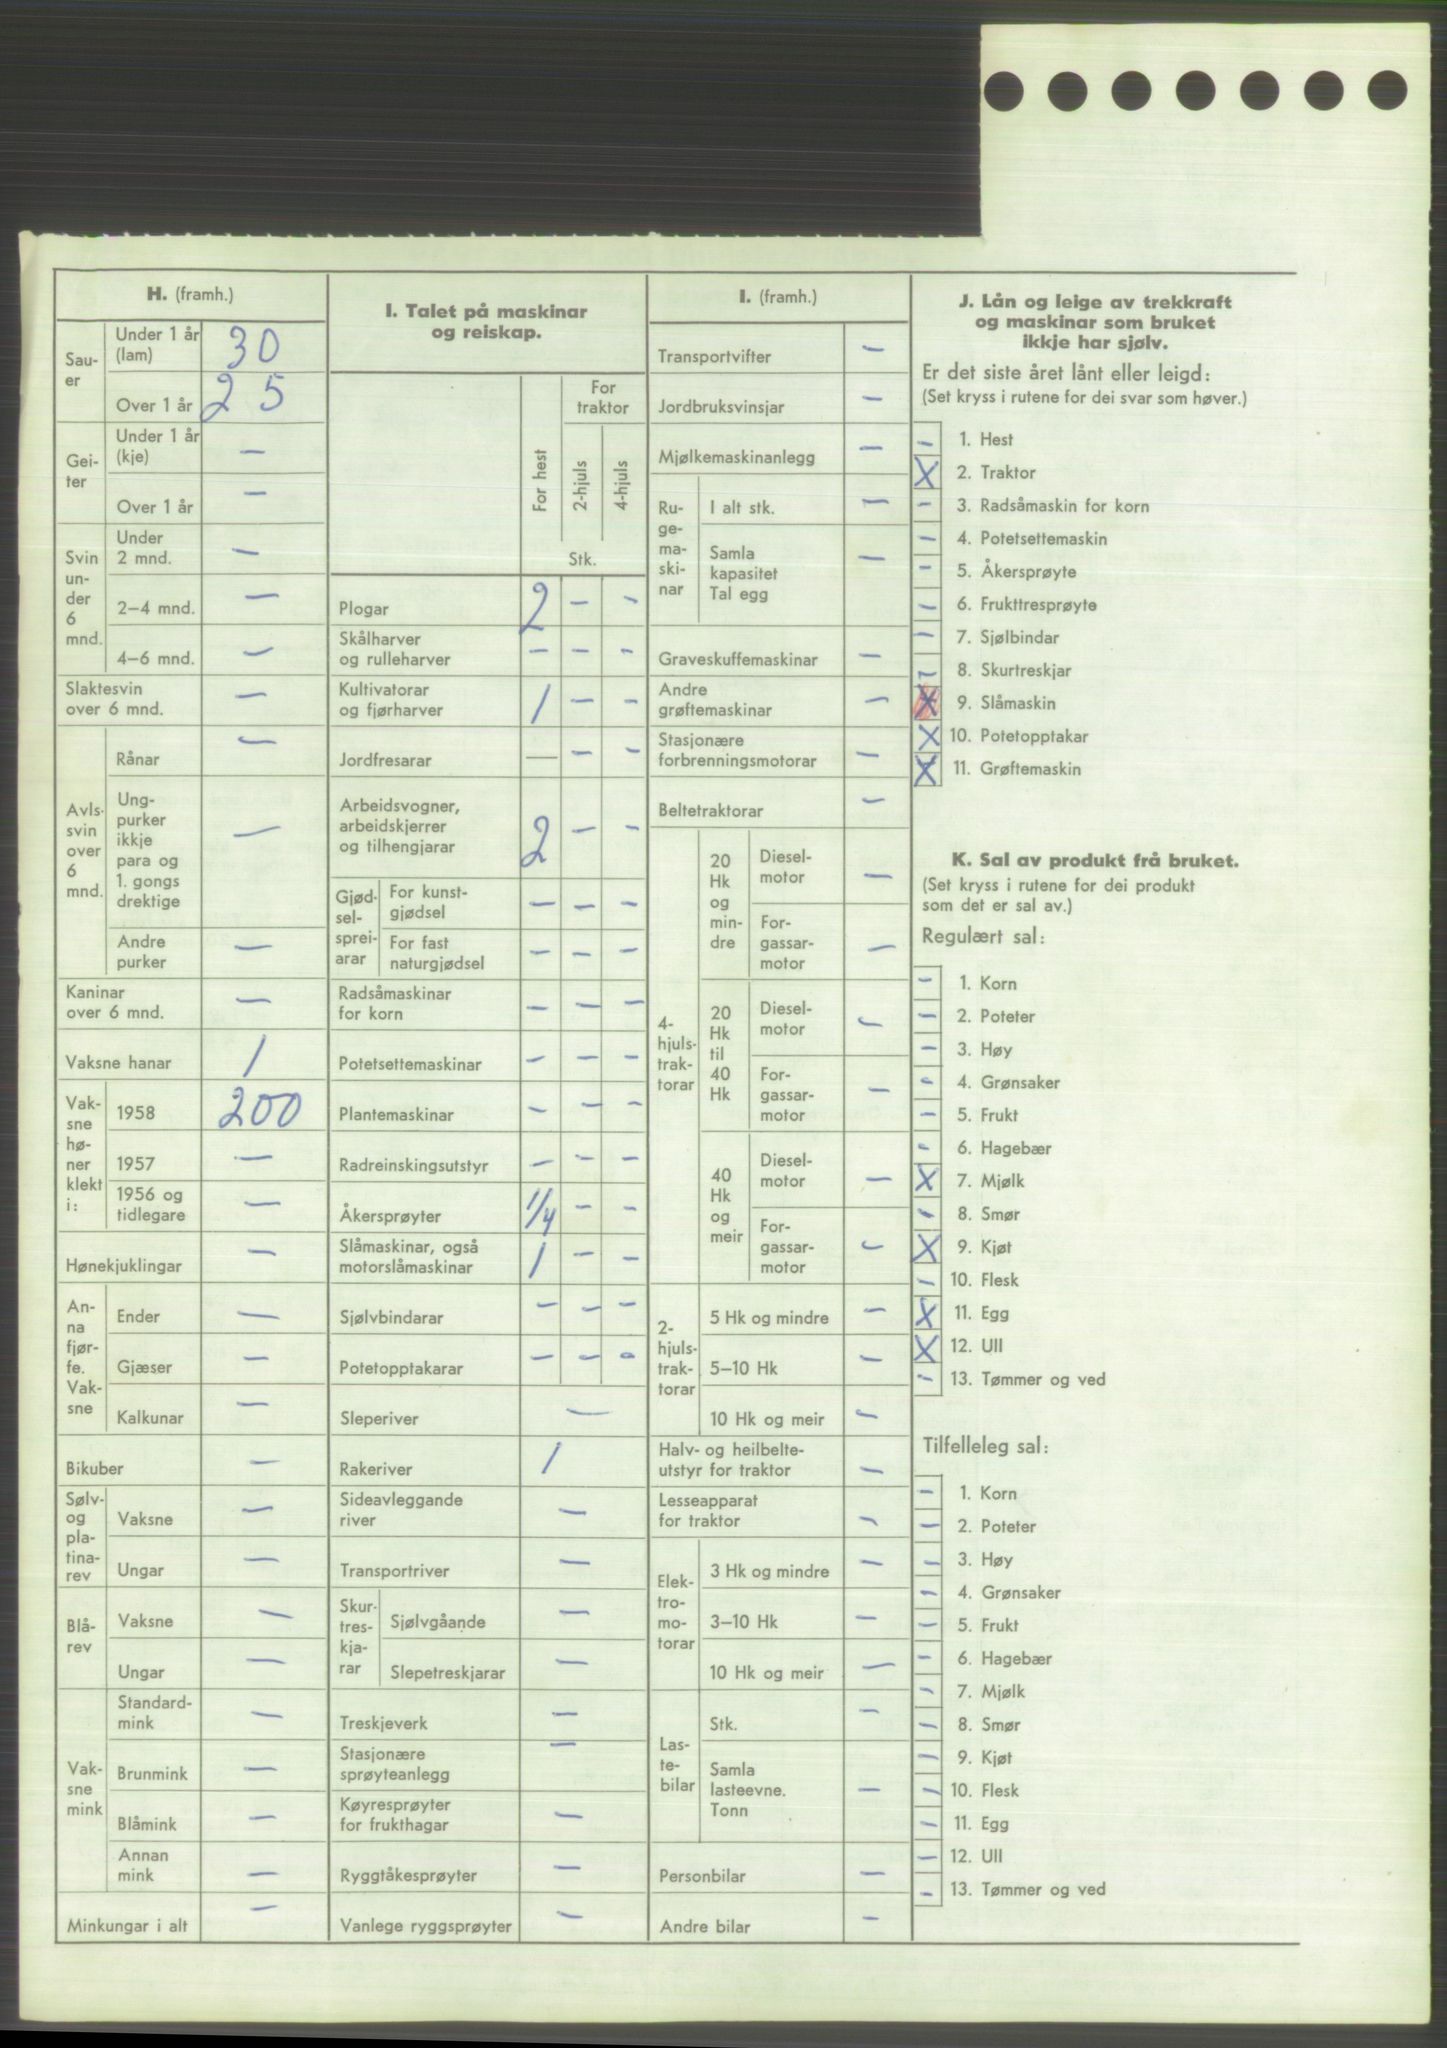 H. (framh.)
Sau-
er
Under 1 år
(lam) 30
Over 1 år 25
Gei-
ter
Under 1 år
(kje) –
Over 1 år –
Svin
un-
der
6
mnd.
Under
2 mnd. –
2–4 mnd. –
4–6 mnd. –
Slaktesvin
over 6 mnd. –
Avls-
svin
over
6
mnd.
Rånar –
Ung-
purker
ikkje
para og
1. gongs
drektige –
Andre
purker –
Kaninar
over 6 mnd. –
Vaksne hanar 1
Vak-
sne
hø-
ner
klekt
i:
1958 200
1957 –
1956 og
tidlegare –
Hønekjuklingar –
An-
na
fjør-
fe.
Vak-
sne
Ender –
Gjæser –
Kalkunar –
Bikuber –
Sølv-
og
pla-
tina-
rev
Vaksne –
Ungar –
Blå-
rev
Vaksne –
Ungar –
Vak-
sne
mink
Standard-
mink –
Brunmink –
Blåmink –
Annan
mink –
Minkungar i alt –
I. Talet på maskinar
og reiskap.
For hest
For
traktor
2-hjuls
4-hjuls
Stk.
Plogar 2 – –
Skålharver
og rulleharver – – –
Kultivatorar
og fjørharver 1 – –
Jordfresarar – – –
Arbeidsvogner,
arbeidskjerrer
og tilhengjarar 2 – –
Gjød-
sel-
sprei-
arar
For kunst-
gjødsel – – –
For fast
naturgjødsel – – –
Radsåmaskinar
for korn – – –
Potetsettemaskinar – – –
Plantemaskinar – – –
Radreinskingsutstyr – – –
Åkersprøyter 1/4 – –
Slåmaskinar, også
motorslåmaskinar 1 – –
Sjølvbindarar – – –
Potetopptakarar – – –
Sleperiver –
Rakeriver 1
Sideavleggande
river –
Transportriver –
Skur-
tres-
kja-
rar
Sjølvgåande –
Slepetreskjarar –
Treskjeverk –
Stasjonære
sprøyteanlegg –
Køyresprøyter
for frukthagar –
Ryggtåkesprøyter –
Vanlege ryggsprøyter –
I. (framh.)
Transportvifter –
Jordbruksvinsjar –
Mjølkemaskinanlegg –
Ru-
ge-
ma-
ski-
nar
I alt stk. –
Samla
kapasitet
Tal egg –
Graveskuffemaskinar –
Andre
grøftemaskinar –
Stasjonære
forbrenningsmotorar –
Beltetraktorar –
4-
hjuls-
trak-
torar
20
Hk
og
min-
dre
Diesel-
motor –
For-
gassar-
motor –
20
Hk
til
40
Hk
Diesel-
motor –
For-
gassar-
motor –
40
Hk
og
meir
Diesel-
motor –
For-
gassar-
motor –
2-
hjuls-
trak-
torar
5 Hk og mindre –
5–10 Hk –
10 Hk og meir –
Halv- og heilbelte-
utstyr for traktor –
Lesseapparat
for traktor –
Elek-
tro-
mo-
torar
3 Hk og mindre –
3–10 Hk –
10 Hk og meir –
Las-
te-
bilar
Stk. –
Samla
lasteevne.
Tonn –
Personbilar –
Andre bilar –
J. Lån og leige av trekkraft
og maskinar som bruket
ikkje har sjølv.
Er det siste året lånt eller leigd:
(Set kryss i rutene for dei svar som høver.)
– 1. Hest
X 2. Traktor
– 3. Radsåmaskin for korn
– 4. Potetsettemaskin
– 5. Åkersprøyte
– 6. Frukttresprøyte
– 7. Sjølbindar
– 8. Skurtreskjar
X 9. Slåmaskin
X 10. Potetopptakar
X 11. Grøftemaskin
K. Sal av produkt frå bruket.
(Set kryss i rutene for dei produkt
som det er sal av.)
Regulært sal:
– 1. Korn
– 2. Poteter
– 3. Høy
– 4. Grønsaker
– 5. Frukt
– 6. Hagebær
X 7. Mjølk
– 8. Smør
X 9. Kjøt
– 10. Flesk
X 11. Egg
X 12. Ull
– 13. Tømmer og ved
Tilfelleleg sal:
– 1. Korn
– 2. Poteter
– 3. Høy
– 4. Grønsaker
– 5. Frukt
– 6. Hagebær
– 7. Mjølk
– 8. Smør
– 9. Kjøt
– 10. Flesk
– 11. Egg
– 12. Ull
– 13. Tømmer og ved